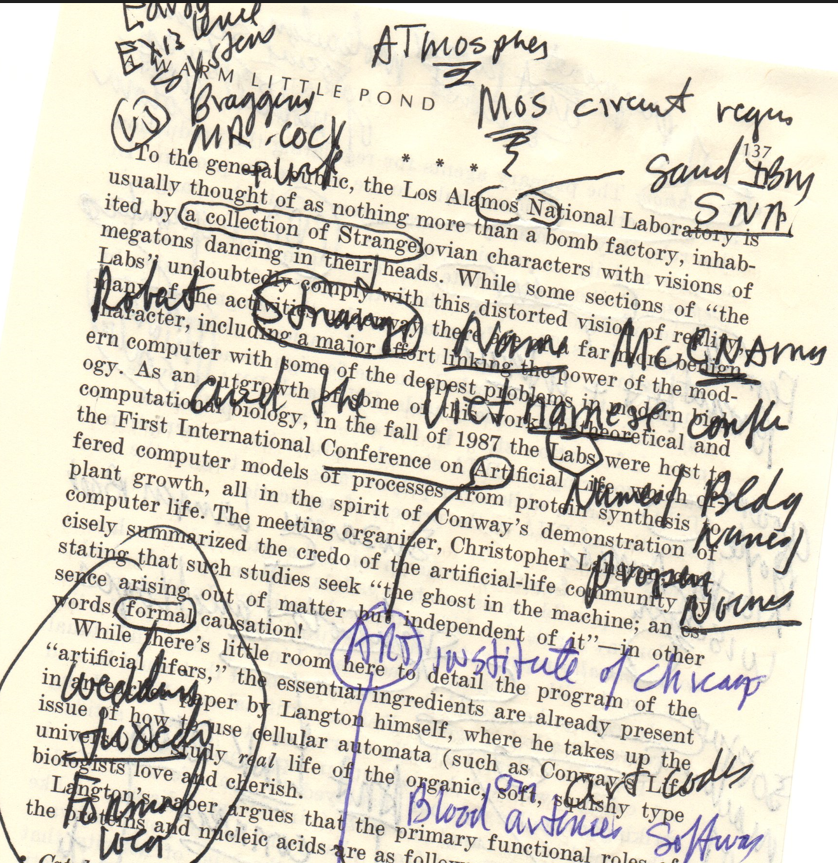 Exis
Systems
ATmosphes
A WARM LITTLE POND
Mos circuit requs
VS
MR. COCK
* * *
137
Sand IBM
SNA
To the general public, the Los Alamos National Laboratory is
usually thought of as nothing more than a bomb factory, inhab-
ited by a collection of Strangelovian characters with visions of
megatons dancing in their heads. While some sections of "the
Labs" undoubtedly comply with this distorted vision of reality,
many of the activities there a far more benign
character, including a major effort linking the power of the mod-
ern computer with some of the deepest problems in modern biol-
ogy. As an outgrowth of some of this work in theoretical and
computational biology, in the fall of 1987 the Labs were host to
the First International Conference on Artificial Life, which of-
fered computer models of processes from protein synthesis to
plant growth, all in the spirit of Conway's demonstration of
computer life. The meeting organizer, Christopher Langton, con-
cisely summarized the credo of the artificial-life community by
stating that such studies seek "the ghost in the machine; an es-
sence arising out of matter but independent of it"—in other
words, formal causation!
Robert Strang Name McENAmes
and the Vietnamese
Names/Bldg
Names/
proper
Nouns
While there's little room here to detail the program of the
"artificial lifers," the essential ingredients are already present
in paper by Langton himself, where he takes up the
issue of how to use cellular automata (such as Conway's Life
universe) study real life of the organic, soft, squishy type
biologists love and cherish.
Langton's paper argues that the primary functional roles of
the proteins and nucleic acids are as follow
ART institute of chicago
Wedding
tuxedo
Formal
wear
on art codes
Blood arteries Softwar